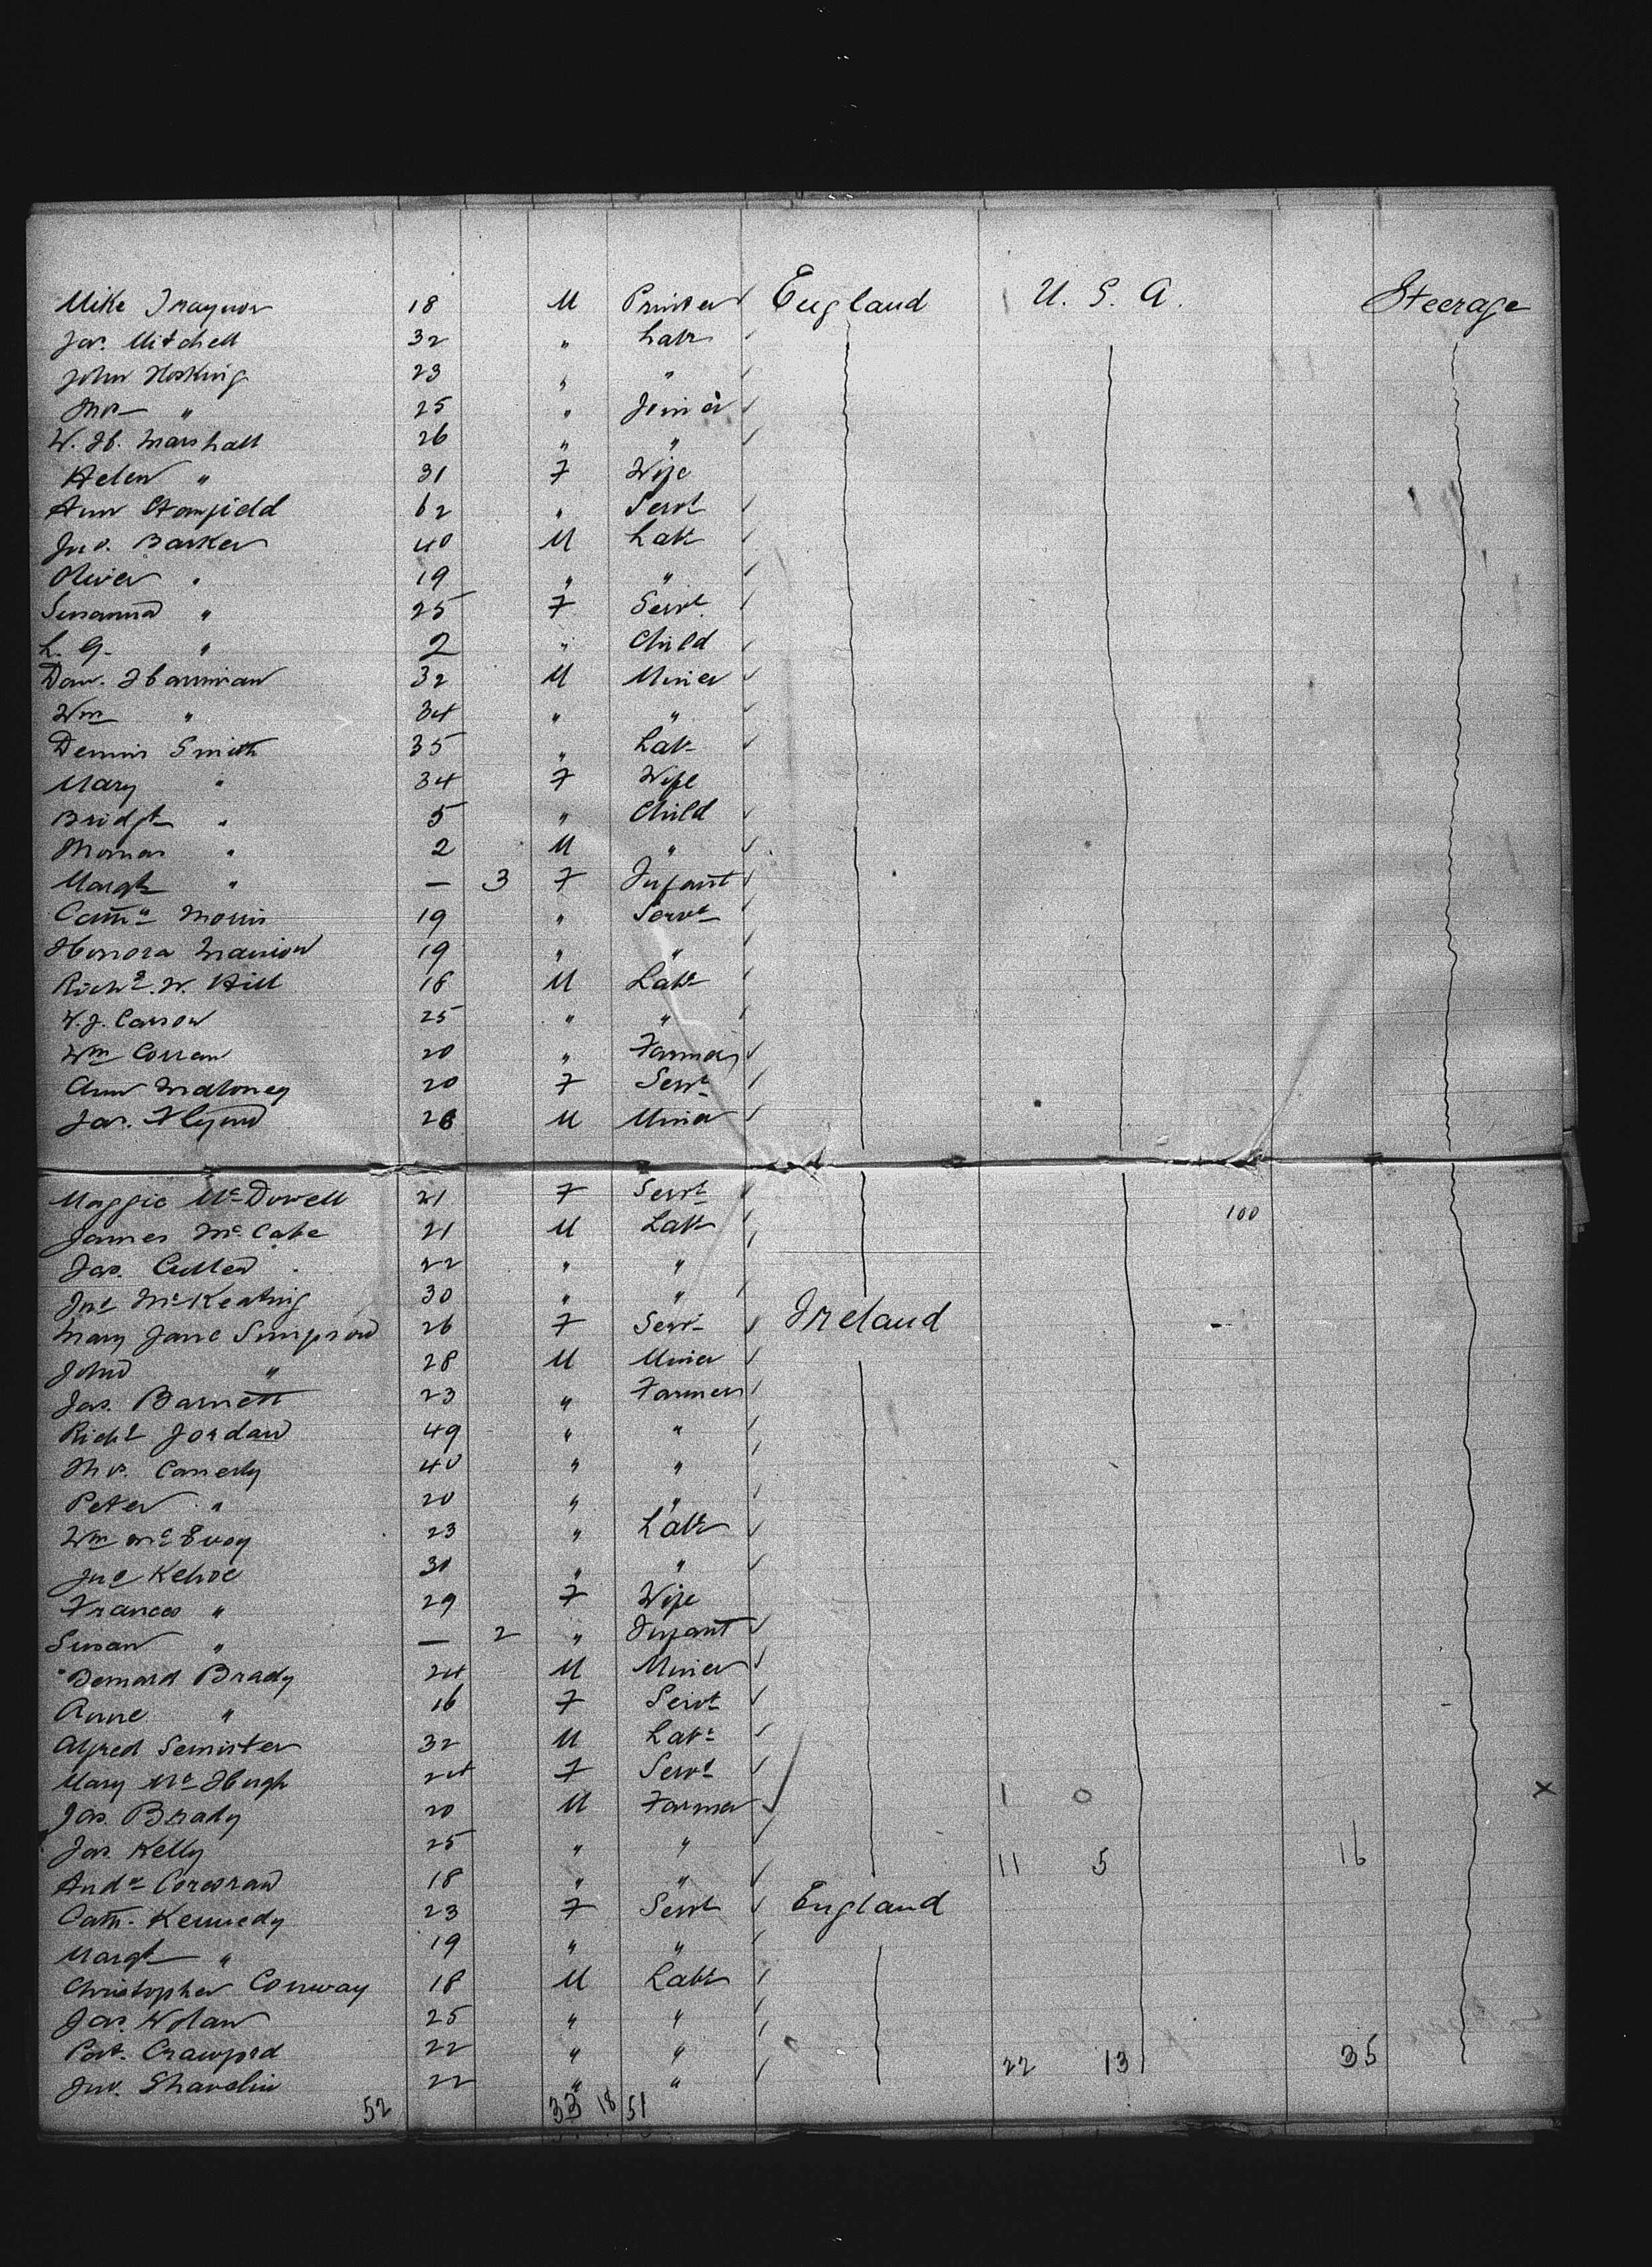 Mike Traynor 18 M Printer England U. S. A. Steerage
Jas. Mitchell 32 " Labr
John Hosking 23 " "
Thos " 25 " Joiner
W. H. Marshall 26 " "
Helen " 31 F Wife
Ann Stanfield 62 " Servt
Jno. Barker 40 M Labr
Oliver " 19 " "
Susanna " 25 F Servt
L. G. " 2 " Child
Dan. Harriman 32 M Miner
Wm " 34 " "
Dennis Smith 35 " Labr
Mary " 34 F Wife
Bridgt " 5 " Child
Thomas " 2 M "
Margt " — 3 F Infant
Cathe Morris 19 " Servt
Honora Manion 19 " "
Richd. W. Hill 18 M Labr
W. J. Carson 25 " "
Wm Corran 20 " Farmer
Ann Maloney 20 F Servt
Jas. Flynn 28 M Miner
Maggie McDowell 21 F Servt
James McCabe 21 M Labr 100
Jas. Cullen 22 " "
Jno McKeating 30 " "
Mary Jane Simpson 26 F Servt Ireland
John " 28 M Miner
Jas. Barnett 23 " Farmer
Richd Jordan 49 " "
Thos. Canerly 40 " "
Peter " 20 " "
Wm McEvoy 23 " Labr
Jno Kehoe 30 " "
Frances " 29 F Wife
Susan " — 2 " Infant
Bernard Brady 24 M Miner
Anne " 16 F Servt
Alfred Seminster 32 M Labr
Mary McHugh 24 F Servt
Jas. Brady 20 M Farmer 1 0 x
Jas. Kelly 25 " " 11 5 16
Andw Corcoran 18 " "
Cath. Kennedy 23 F Servt England
Margt " 19 " "
Christopher Conway 18 M Labr
Jas. Nolan 25 " "
Pat. Crawford 22 " " 22 13 35
Jno. Shavelin 22 " "
52 33 18 51